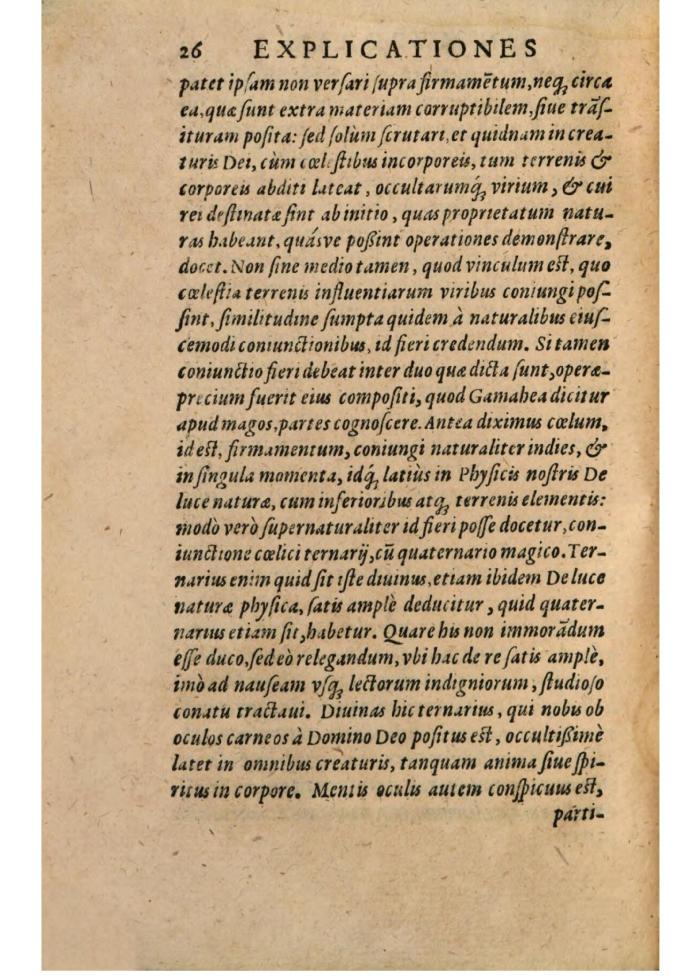 26 EXPLICATIONES
patet ipſam non verſari ſupra firmamẽtum, neq; circa
ea, quæ ſunt extra materiam corruptibilem, ſiue trãſ-
ituram poſita: ſed ſolùm ſcrutari, et quidnam in crea-
turis Dei, cùm cœleſtibus incorporeis, tum terrenis &
corporeis abditi lateat, occultarumq́; virium, & cui
rei deſtinatæ ſint ab initio, quas proprietatum natu-
ras habeant, quásve poßint operationes demonſtrare,
docet. Non ſine medio tamen, quod vinculum eſt, quo
cœleſtia terrenis influentiarum viribus coniungi poſ-
ſint, ſimilitudine ſumpta quidem à naturalibus eiuſ-
cemodi coniunctionibus, id fieri credendum. Si tamen
coniunctio fieri debeat inter duo quæ dicta ſunt, operæ-
precium fuerit eius compoſiti, quod Gamahea dicitur
apud magos, partes cognoſcere. Antea diximus cœlum,
id eſt, firmamentum, coniungi naturaliter indies, &
in ſingula momenta, idq́; latiùs in Phyſicis noſtris De
luce naturæ, cum inferioribus atq; terrenis elementis:
modò verò ſupernaturaliter id fieri poſſe docetur, con-
iunctione cœlici ternarij, cũ quaternario magico. Ter-
narius enim quid ſit iſte diuinus, etiam ibidem De luce
naturæ phyſica, ſatis amplè deducitur, quid quater-
narius etiam ſit, habetur. Quare his non immorãdum
eſſe duco, ſed eò relegandum, vbi hac de re ſatis amplè,
imò ad nauſeam vſq; lectorum indigniorum, ſtudioſo
conatu tractaui. Diuinus hic ternarius, qui nobis ob
oculos carneos à Domino Deo poſitus eſt, occultißimè
latet in omnibus creaturis, tanquam anima ſiue ſpi-
ritus in corpore. Mentis oculis autem conſpicuus eſt,
parti-